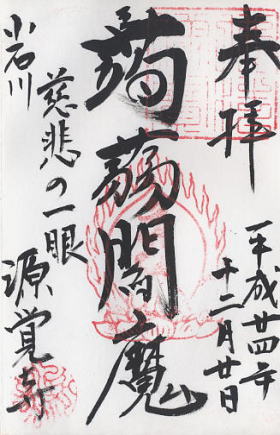 奉拝
平成廿四年
十二月廿日
蒟蒻閻魔
慈悲の一眼
小石川
源覚寺